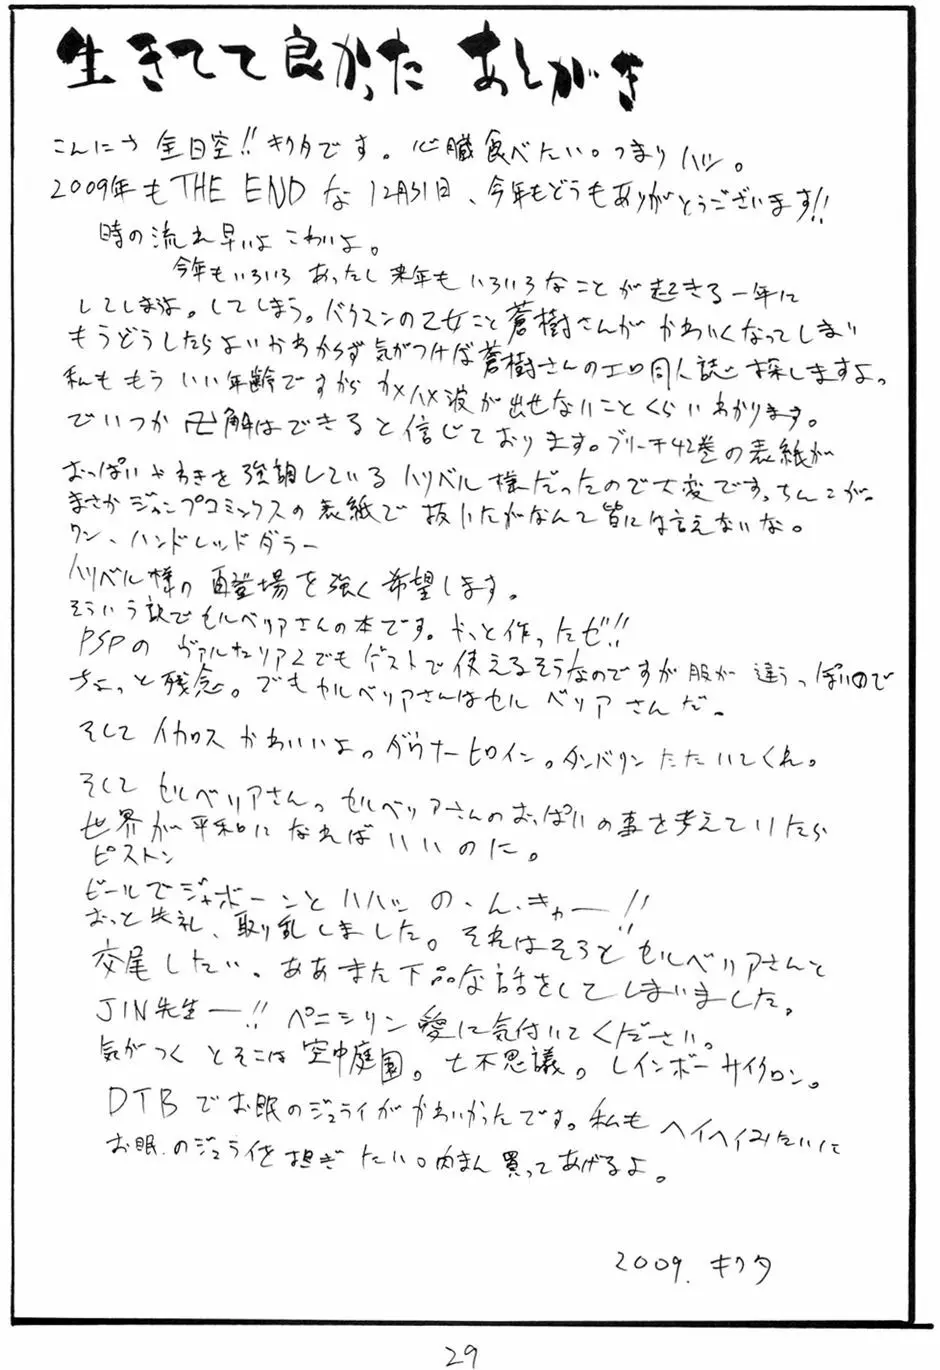 生きてて良かった あとがき
こんにち 全日空!! キクタです。心臓食べたい。つまりハツ。
2009年もTHE ENDな12月31日、今年もどうもありがとうございます!!
時の流れ早いよ こわいよ。
今年もいろいろあったし来年もいろいろなことが起きる一年に
してしまえよ。してしまう。バクマンの乙女こと蒼樹さんがかわいくなってしまい
もうどうしたらよいかわからず気がつけば蒼樹さんのエロ同人誌を探しますよ。
私ももういい年齢ですからカメハメ波が出せないことくらいわかります。
でいつか卍解はできると信じております。ブリーチ42巻の表紙が
おっぱいやわきを強調しているハリベル様だったので大変です。ちんこが。
まさかジャンプコミックスの表紙で抜いたがなんて皆には言えないな。
ワン、ハンドレッドダラー
ハリベル様の再登場を強く希望します。
そういう訳でセルベリアさんの本です。やっと作ったゼ!!
PSPのヴァルキュリア2でもゲストで使えるそうなのですが服が違うっぽいので
ちょっと残念。でもセルベリアさんはセルベリアさんだ。
そしてイカロスかわいいよ。ダウナーヒロイン。タンバリンたたいてくれ。
そしてセルベリアさん。セルベリアさんのおっぱいの事を考えていたら
世界が平和になればいいのに。
ピストン
ビールでジャボーンとハハッ の、ん、きゃー!!
おっと失礼、取り乱しました。それはそうとセルベリアさんと
交尾したい。ああまた下品な話をしてしまいました。
JIN先生ー!! ペニシリン愛に気付いてください。
気がつくとそこは空中庭園。七不思議。レインボーサイクロン。
DTBでお眠のジュライがかわいかったです。私もヘイヘイみたいに
お眠のジュライを担ぎたい。肉まん買ってあげるよ。
2009. キクタ
29